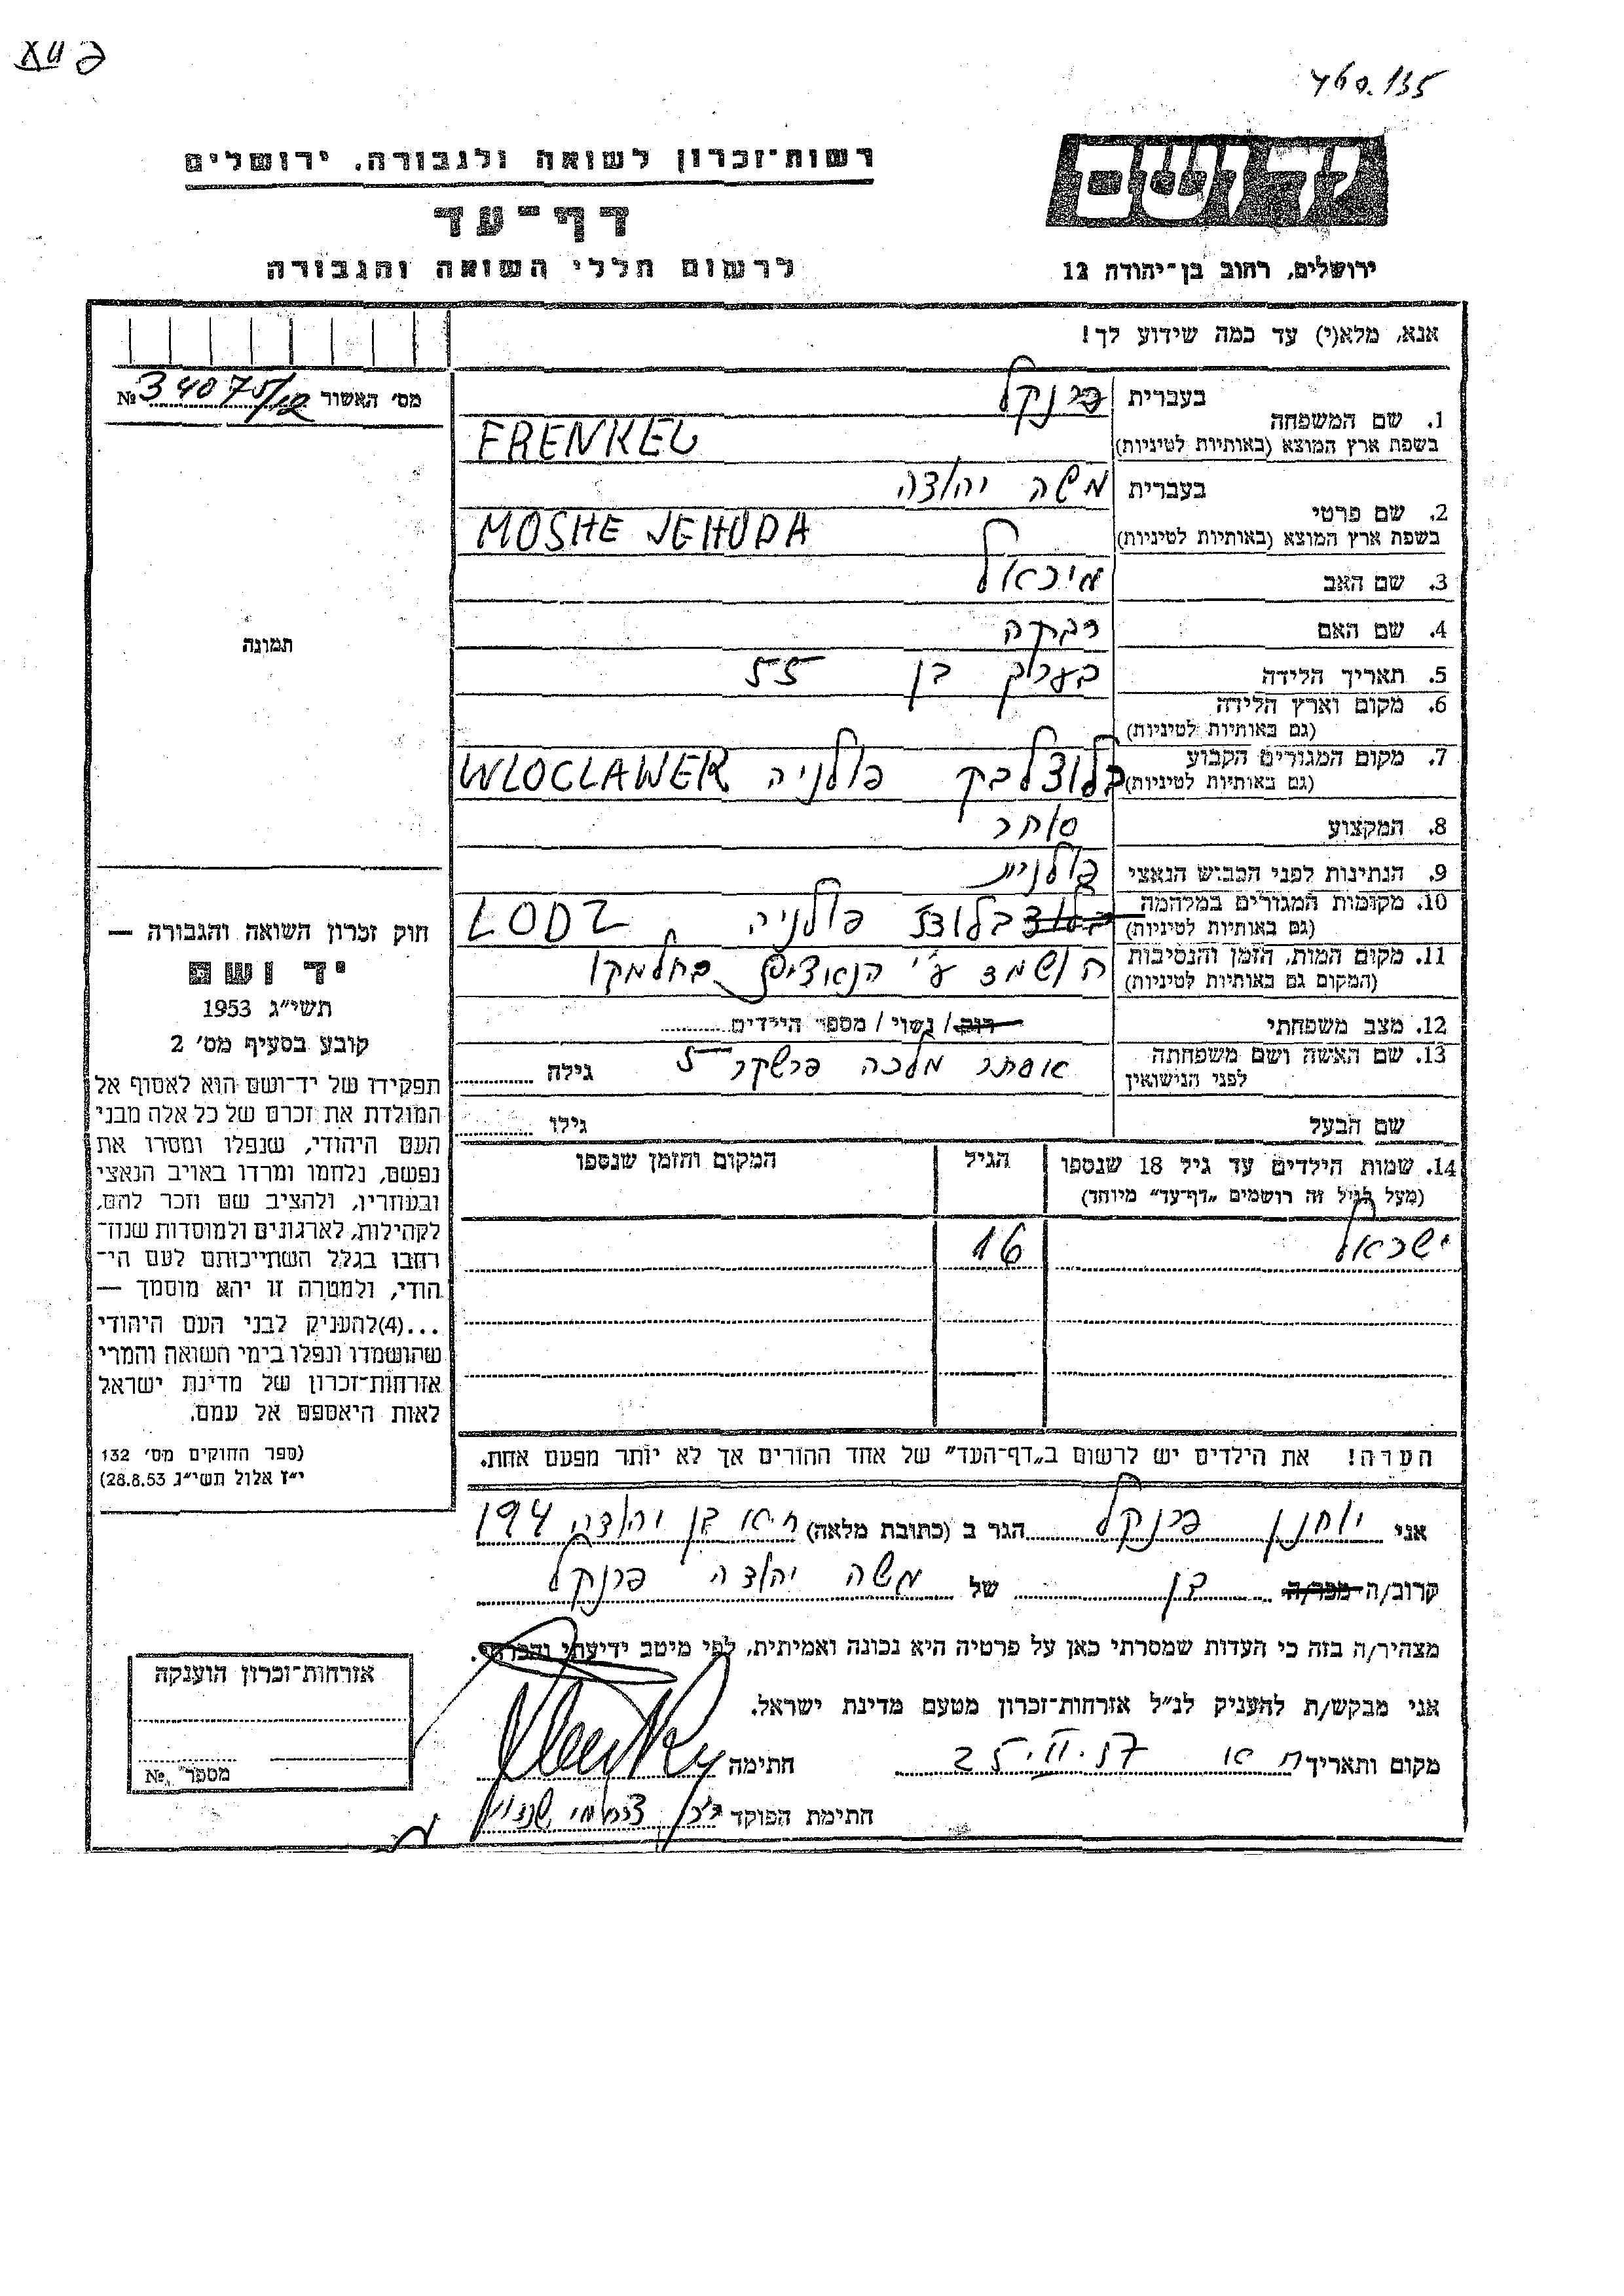 460.135
רשות־זכרון לשואה ולגבורה, ירושלים
יד ושם
דף־עד
לרשום חללי השואה והגבורה
ירושלים, רחוב בן־יהודה 12
אנא, מלא(י) עד כמה שידוע לך!
מס' האשור № 34075/12
1. שם המשפחה בעברית פרנקל
בשפת ארץ המוצא (באותיות לטיניות) FRENKEL
2. שם פרטי בעברית משה יהודה
בשפת ארץ המוצא (באותיות לטיניות) MOSHE JEHUDA
3. שם האב מיכאל
4. שם האם רבקה
5. תאריך הלידה בערך בן 55
6. מקום וארץ הלידה
(גם באותיות לטיניות)
7. מקום המגורים הקבוע
(גם באותיות לטיניות) בלוצלבק פולניה WLOCLAWEK
8. המקצוע סוחר
9. הנתינות לפני הכבוש הנאצי פולנית
10. מקומות המגורים במלחמה
(גם באותיות לטיניות) בלודז פולניה LODZ
11. מקום המות, הזמן והנסיבות
(המקום גם באותיות לטיניות) הושמד ע"י הנאצים בחלמנו
12. מצב משפחתי רווק / נשוי / מספר הילדים
13. שם האשה ושם משפחתה
לפני הנישואין אסתר מלכה גילה
שם הבעל גילו
14. שמות הילדים עד גיל 18 שנספו הגיל המקום והזמן שנספו
(מעל לגיל זה רושמים „דף־עד" מיוחד)
ישראל 16
הערה! את הילדים יש לרשום ב„דף־העד" של אחד ההורים אך לא יותר מפעם אחת.
תמונה
חוק זכרון השואה והגבורה —
יד ושם
תשי"ג 1953
קובע בסעיף מס' 2
תפקידו של יד־ושם הוא לאסוף אל
המולדת את זכרם של כל אלה מבני
העם היהודי, שנפלו ומסרו את
נפשם, נלחמו ומרדו באויב הנאצי
ובעוזריו, ולהציב שם וזכר להם,
לקהילות, לארגונים ולמוסדות שנח־
רבו בגלל השתייכותם לעם הי־
הודי, ולמטרה זו יהא מוסמך —
...(4)להעניק לבני העם היהודי
שהושמדו ונפלו בימי השואה והמרי
אזרחות־זכרון של מדינת ישראל
לאות היאספם אל עמם.
(ספר החוקים מס' 132
י"ז אלול תשי"ג 28.8.53)
אני יוחנן פרנקל הגר ב (כתובת מלאה) בן יהודה 194
קרוב/ה מכר/ה בן של משה יהודה פרנקל
מצהיר/ה בזה כי העדות שמסרתי כאן על פרטיה היא נכונה ואמיתית, לפי מיטב ידיעתי והכרתי.
אני מבקש/ת להעניק לנ"ל אזרחות־זכרון מטעם מדינת ישראל.
מקום ותאריך ת"א 25.II.57 חתימה
חתימת הפוקד
אזרחות־זכרון הוענקה
מספר №